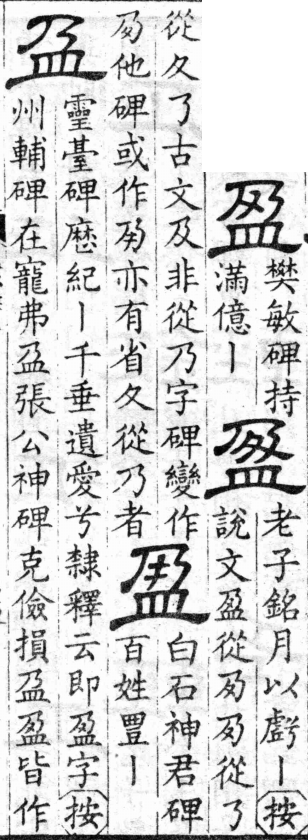 盈
樊敏碑持
滿億丨
盈
老子銘月以虧丨按
說文盈從夃夃從了
從夂了古文及非從乃字碑變作
夃他碑或作夃亦有省夂從乃者
盈
白石神君碑
百姓豊丨
盈
靈臺碑厯紀丨千垂遺愛兮隸釋云即盈字按
州輔碑在寵弗盁張公神碑克儉損盁盈皆作